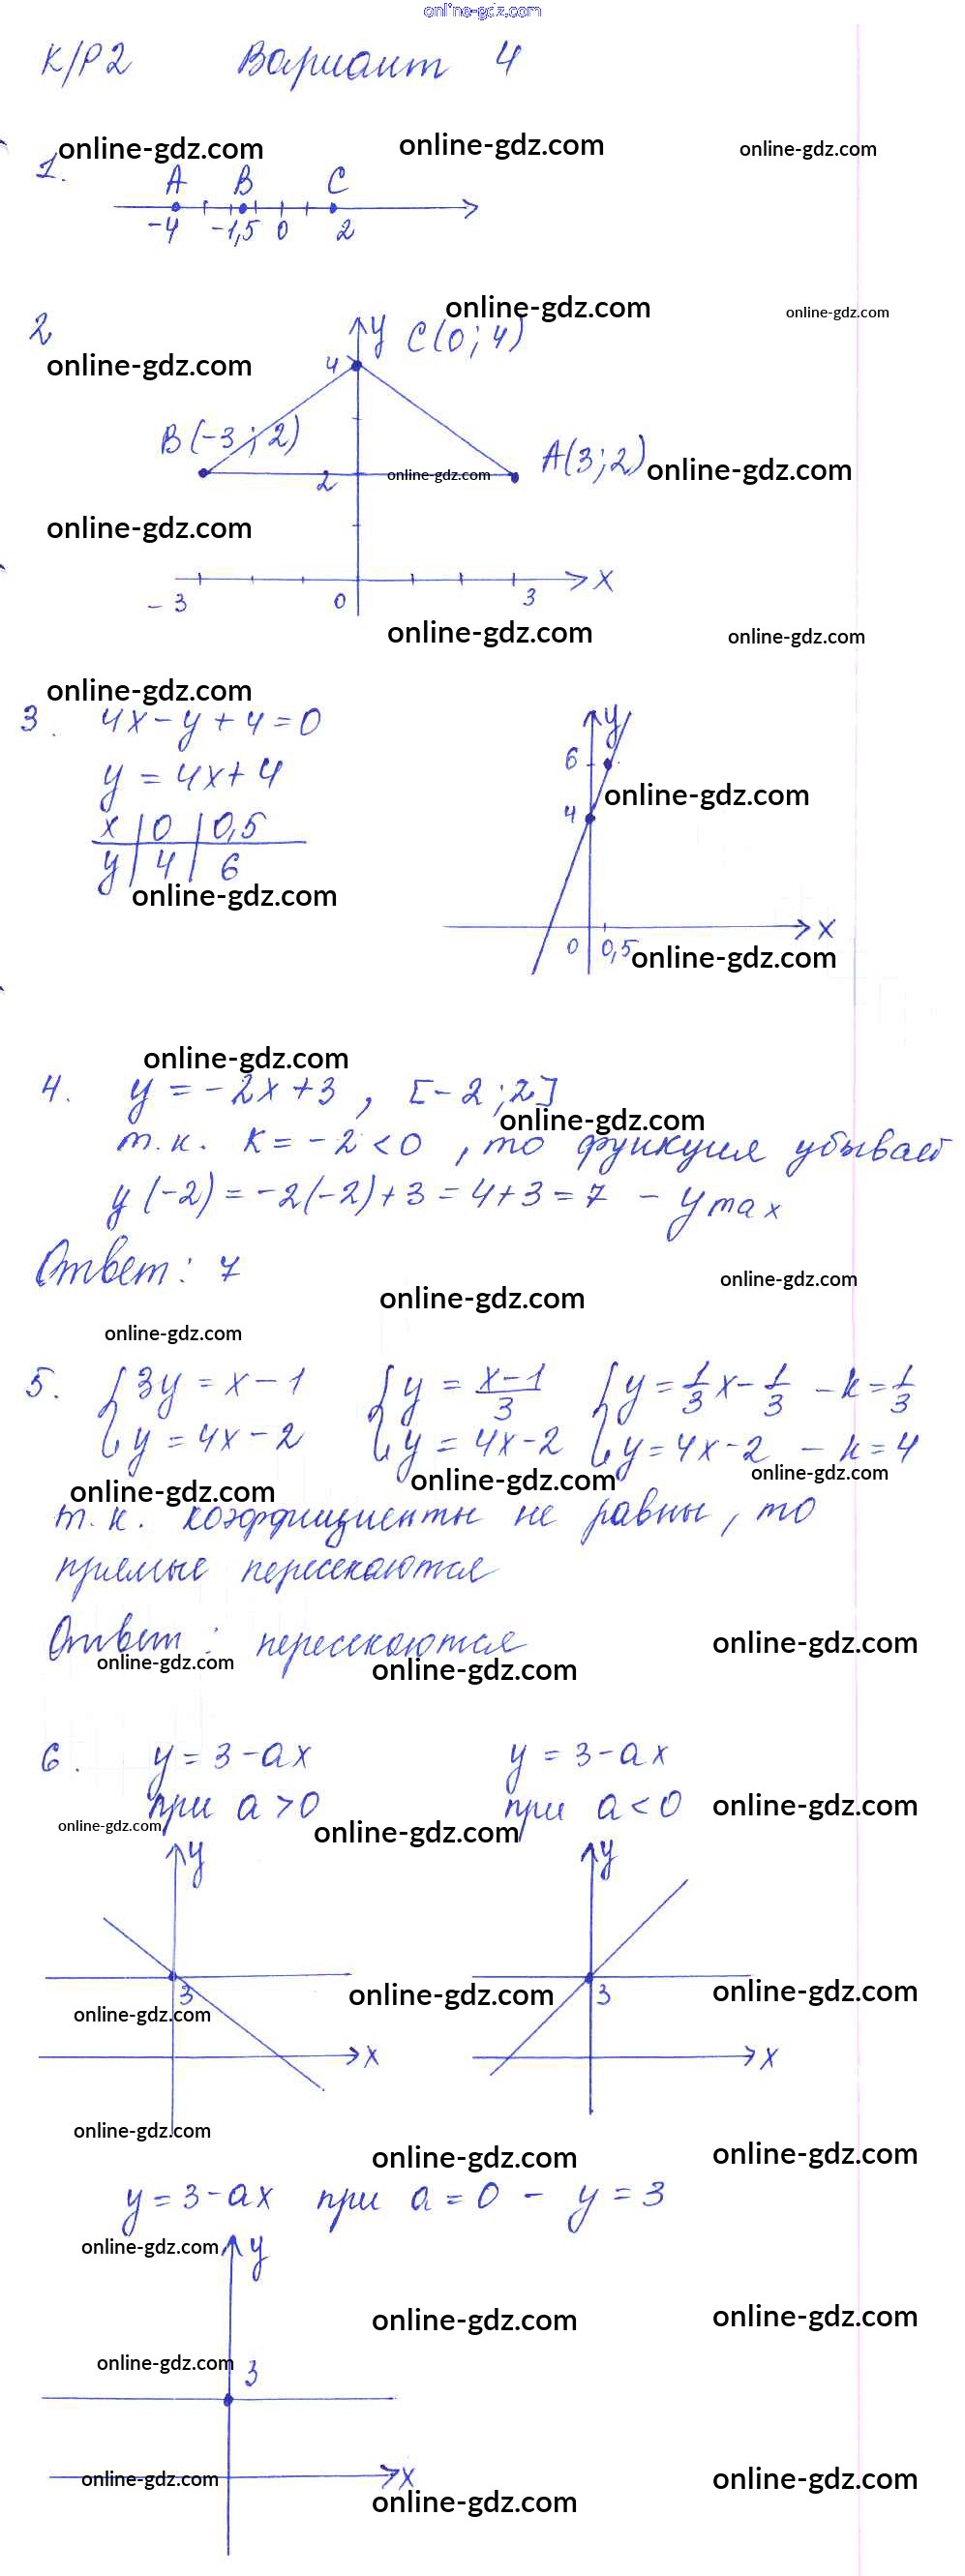 online-gdz.com
К/Р2 Вариант 4
online-gdz.com online-gdz.com online-gdz.com
1.
A B C
-4 -1,5 0 2
online-gdz.com online-gdz.com
2
y C(0; 4)
4
online-gdz.com
B(-3; 2)
A(3; 2) online-gdz.com
2 online-gdz.com
online-gdz.com
x
-3 0 3
online-gdz.com online-gdz.com
online-gdz.com
3. 4x - y + 4 = 0
y = 4x + 4
x 0 0,5
y 4 6
online-gdz.com
y
6
online-gdz.com
4
x
0 0,5 online-gdz.com
online-gdz.com
4. y = -2x + 3, [-2; 2]
online-gdz.com
т.к. k = -2 < 0, то функция убывает
y(-2) = -2(-2) + 3 = 4 + 3 = 7 - y max
Ответ: 7
online-gdz.com
online-gdz.com
online-gdz.com
5. { 3y = x - 1 { y = (x-1)/3 { y = 1/3 x - 1/3 - k = 1/3
y = 4x - 2 y = 4x - 2 y = 4x - 2 - k = 4
online-gdz.com online-gdz.com online-gdz.com
т.к. коэффициенты не равны, то
прямые пересекаются
Ответ: пересекаются
online-gdz.com online-gdz.com online-gdz.com
6. y = 3 - ax y = 3 - ax
при a > 0 при a < 0
online-gdz.com
online-gdz.com online-gdz.com
y y
3 3
online-gdz.com online-gdz.com
online-gdz.com
x x
online-gdz.com
online-gdz.com online-gdz.com
y = 3 - ax при a = 0 - y = 3
online-gdz.com y
online-gdz.com online-gdz.com
online-gdz.com 3
online-gdz.com x online-gdz.com
online-gdz.com